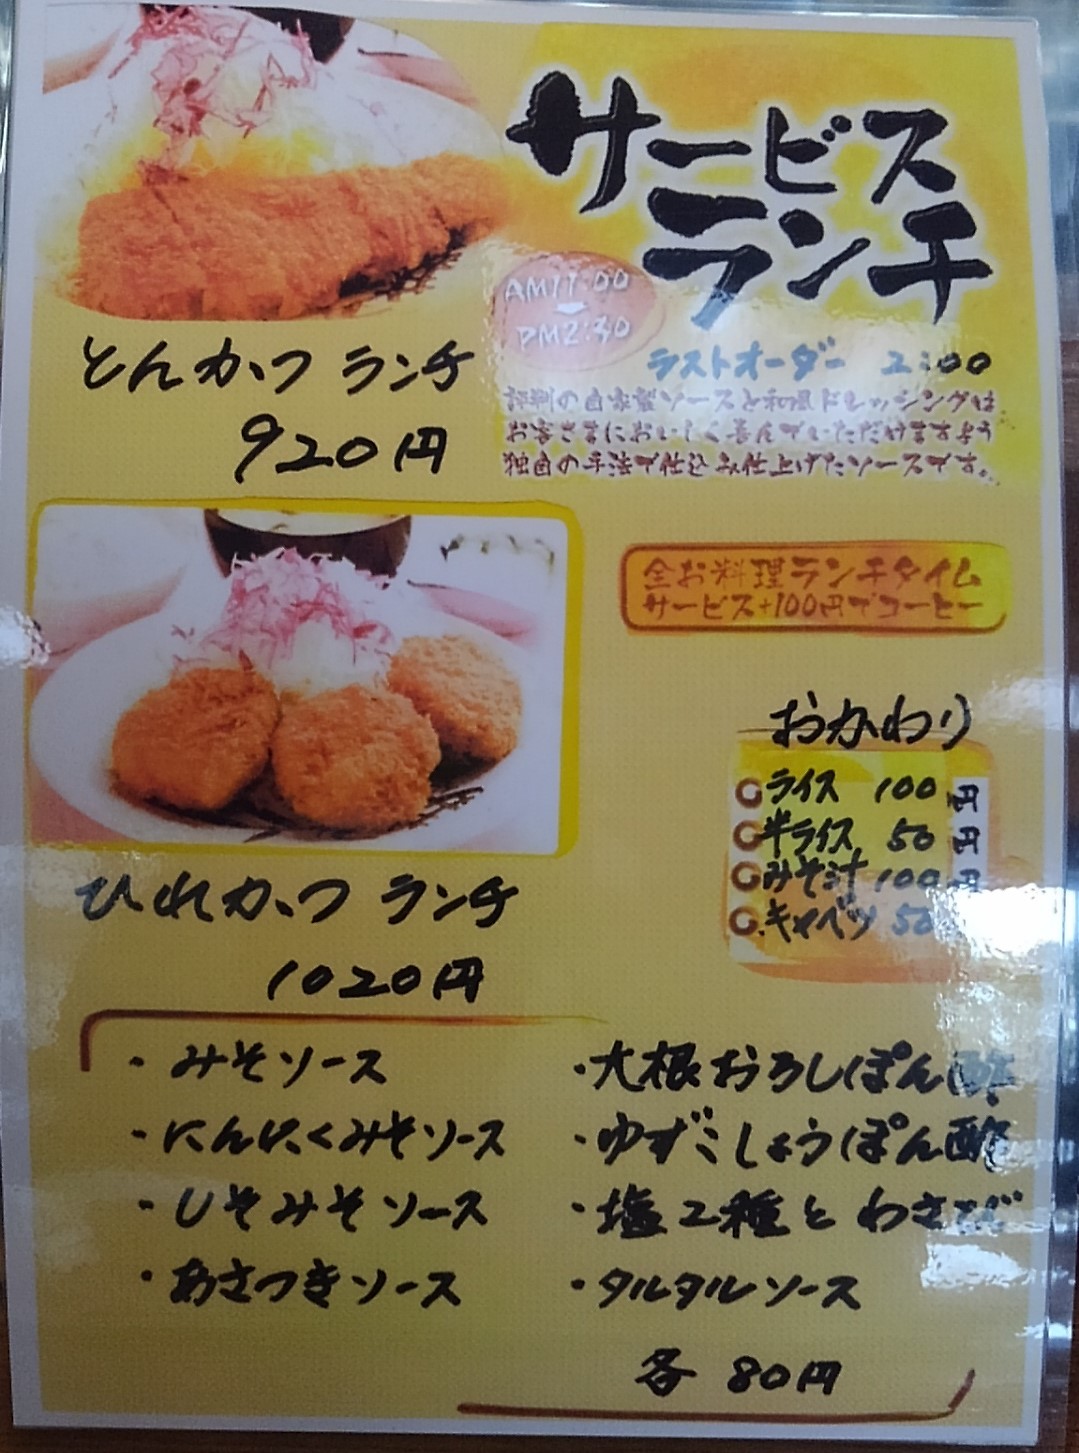 サービス
ランチ
AM11:00
PM2:30
ラストオーダー 2:00
評判の自家製ソースと和風ドレッシングは
お客さまにおいしく喜んでいただけますよう
独自の手法で仕込み仕上げたソースです。
とんかつ ランチ
920円
全お料理ランチタイム
サービス+100円でコーヒー
おかわり
ライス 100円
半ライス 50円
みそ汁 100円
キャベツ 50
ひれかつ ランチ
1020円
・みそソース
・にんにくみそソース
・しそみそソース
・あさつきソース
・大根おろしぽん酢
・ゆずこしょうぽん酢
・塩2種とわさび
・タルタルソース
各 80円